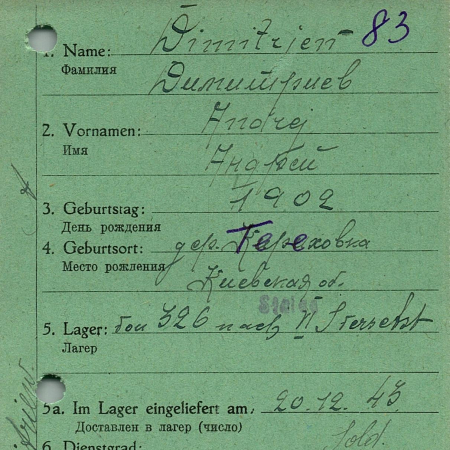 1. Name: Dimitrjew 83
Фамилия
Димитриев
2. Vornamen: Andrej
Имя
Андрей
3. Geburtstag: 1902
День рождения
4. Geburtsort: дер.
Место рождения
Киевская об.
5. Lager: 326 nach
Лагер
5a. Im Lager eingeliefert am, 20.12.43
Доставлен в лагер (число)
6. Dienstgrad: Sold.